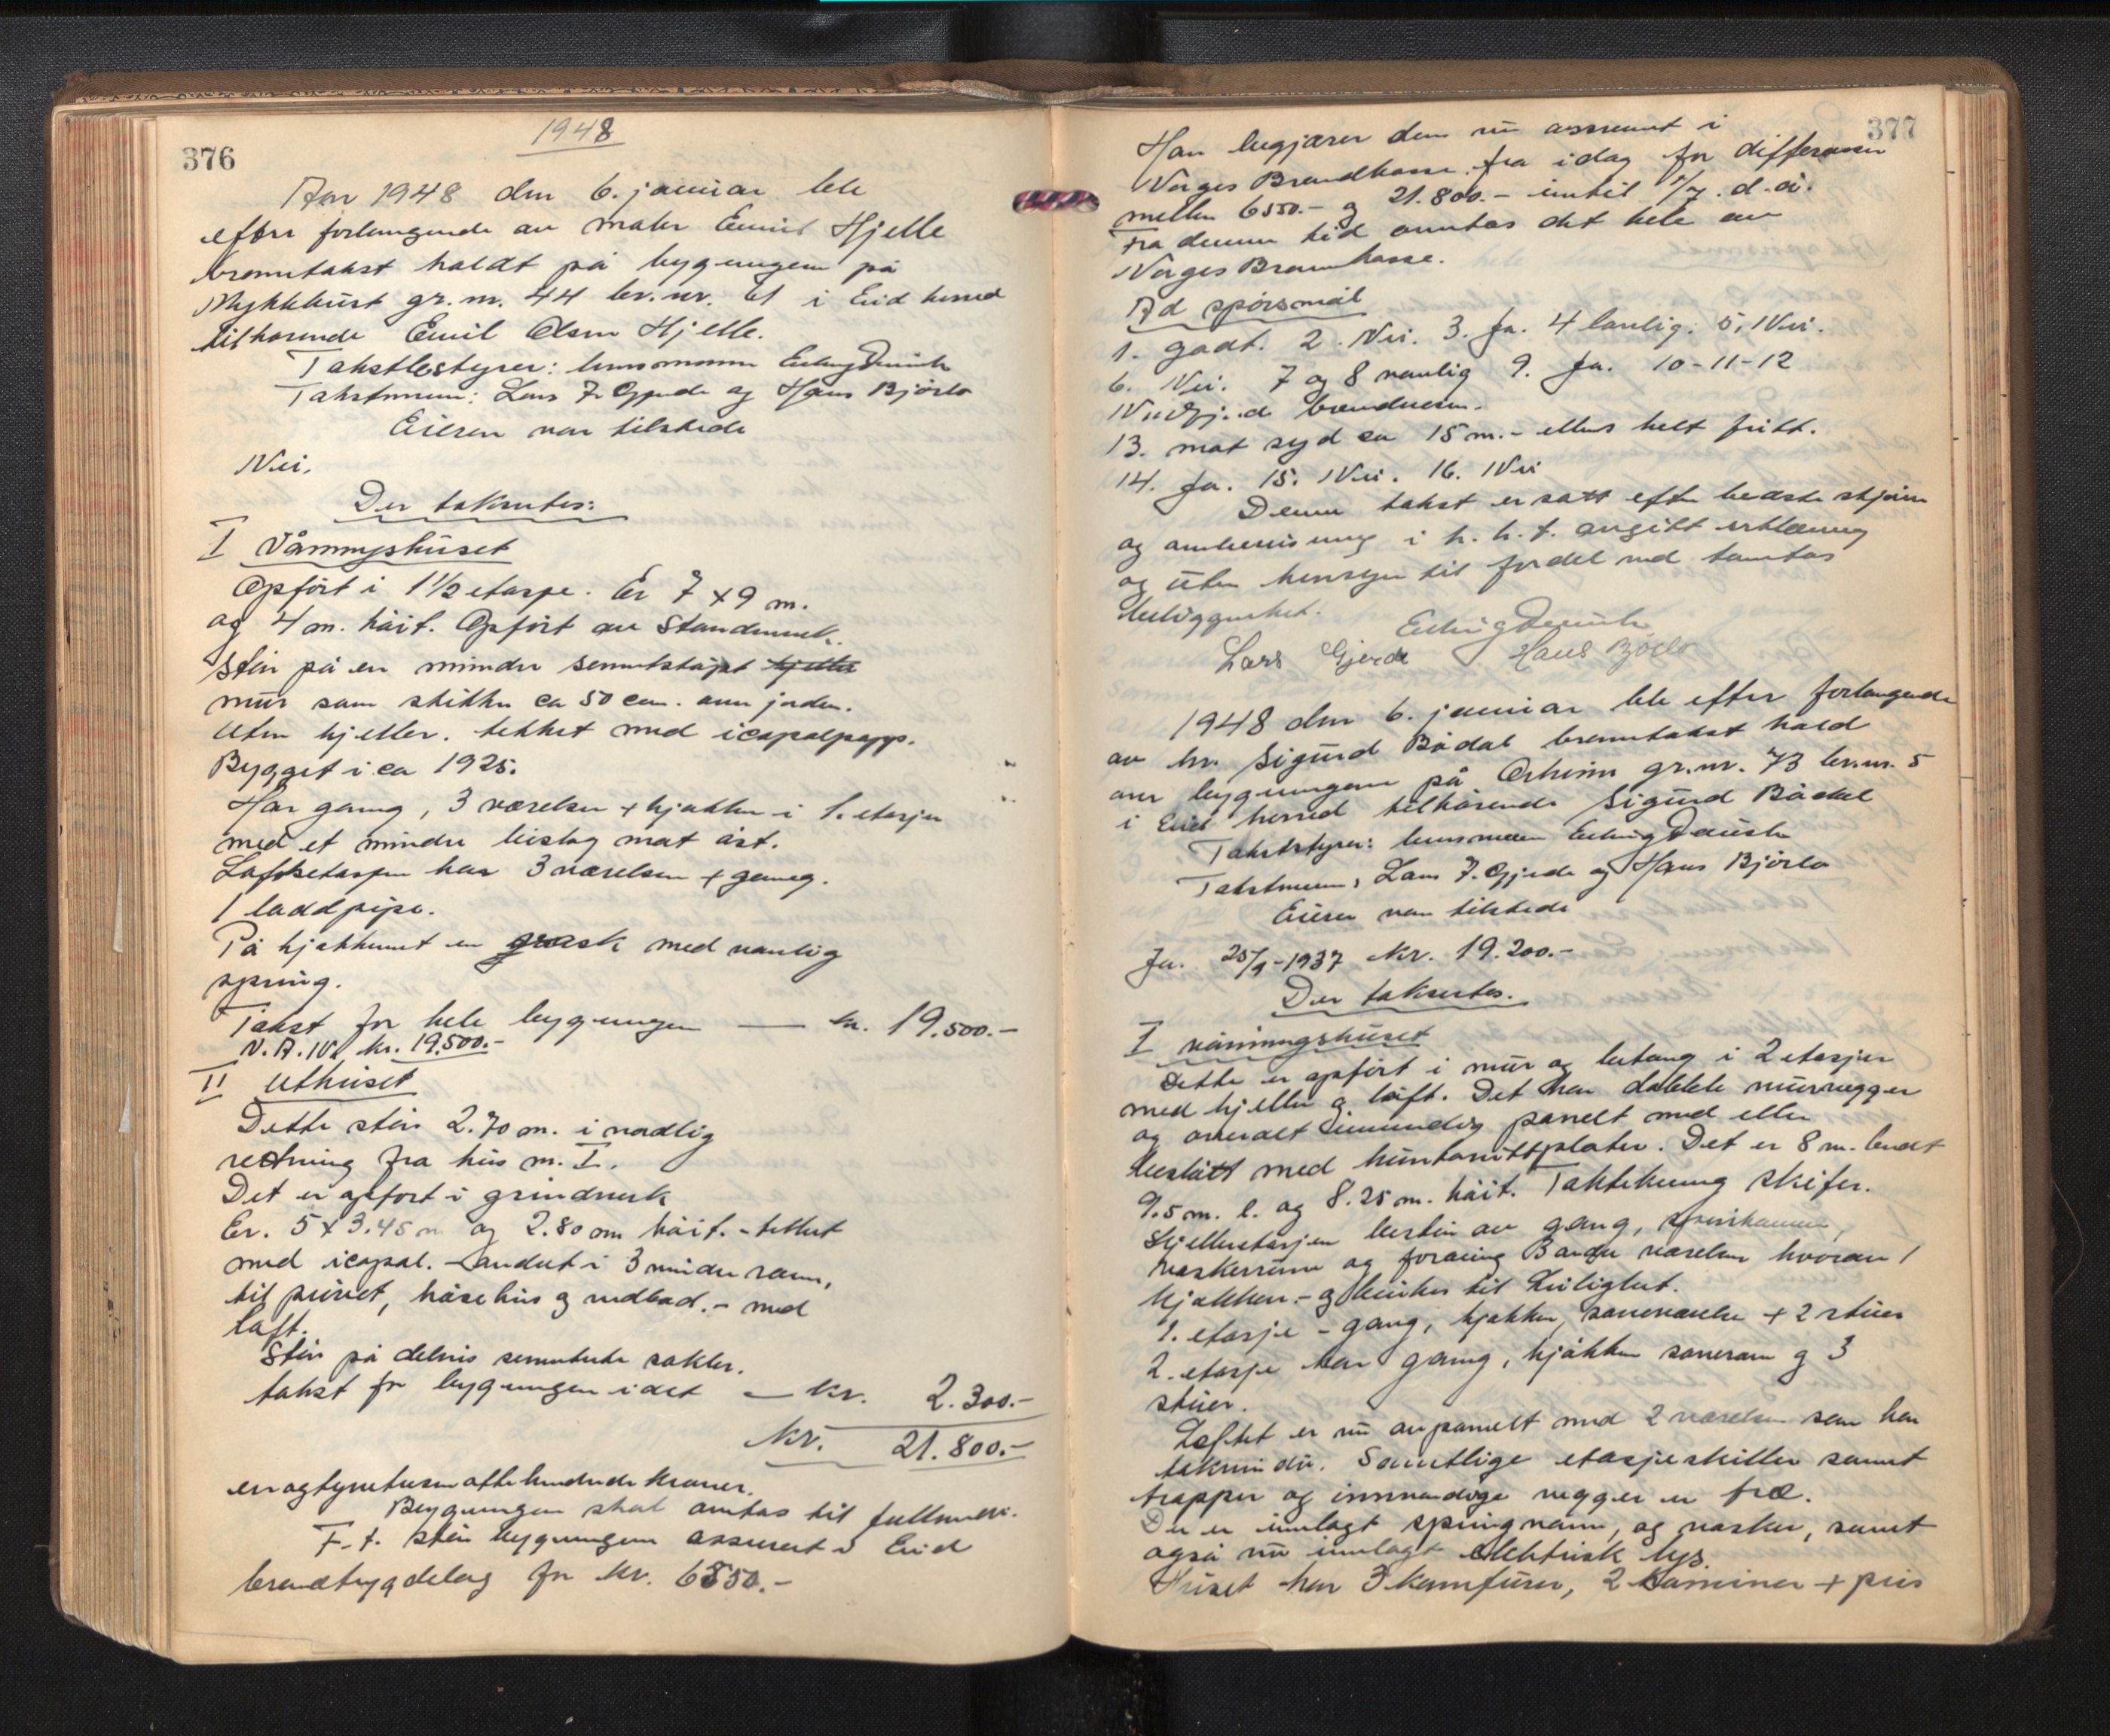 376
1948
Aar 1948 den 6. januar ble
efter forlangende av maler Emil Hjelle
branntakst holdt på bygningene på
Myklebust gr.nr. 44 br.nr. i Eid herred
tilhørende Emil Olsen Hjelle.
Takstbestyrer: lensmann Erling
Takstmenn: Lars F. Gjerde og Hans Bjørlo
Eieren var tilstede
Nei.
Der taksertes:
I Våningshuset
Opført i 1 1/2 etasje. Er 7 x 9 m.
og 4 m. høit. Opført av
Står på en mindre sementstøpt kjeller
mur som stikker ca 50 cm. over jorden.
Uten kjeller. tekket med icopalpapp.
Bygget i ca 1925.
Har gang, 3 værelser + kjøkken i 1. etasje
med et mindre bislag mot øst.
Loftsetasjen har 3 værelser + gang.
1 loddpipe.
På kjøkkenet er vask med vanlig
spring.
Takst for hele bygningen — kr. 19.500.-
V.A.N. kr. 19.500.-
II Uthuset
Dette står 2.70 m. i nordlig
retning fra hus nr. I.
Det er opført i grindverk
Er. 5 x 3.45 m og 2.80 m høit. - tekket
med icopal. - andelt i 3 mindre rom,
til privet, hønsehus og vedbod. - med
loft.
Står på delvis sementerte sokler.
takst for bygningen i det — kr. 2.300.-
Kr. 21.800.-
en og tyvetusen åtte hundrede kroner.
Bygningen skal antas til fullverdi.
F.t. står bygningen assurert i Eid
brandbygdelag for kr. 6550.-
377
Han begjærer den nu assurert i
Norges Brandkasse fra idag for differansen
mellem 6550.- og 21.800.- inntil 1/7. d.å.
Fra denne tid anntas det hele av
Norges Brannkasse.
Ad spørsmål
1. godt. 2. Nei. 3. Ja. 4 lovlig. 5. Nei.
6. Nei. 7 og 8 vanlig 9. Ja. 10-11-12
13. mot syd ca 15 m. - ellers helt fritt.
14. Ja. 15. Nei. 16. Nei
Denne takst er satt efter bedste skjønn
og overbevisning i h.h.t. avgitt erklæring
og uten hensyn til fordel ved tomtas
beliggenhet.
Erling
Lars Gjerde Hans Bjørlo
1948 den 6. januar ble efter forlangende
av hr. Sigurd Bødal branntakst hold
over bygningene på gr.nr. 73 br.nr. 5
i Eid herred tilhørende Sigurd Bødal
Takstbestyrer: lensmann Erling
Takstmenn, Lars F. Gjerde og Hans Bjørlo
Eieren var tilstede
Ja. 25/9-1937 Kr. 19.200.-
Der taksertes.
I våningshuset
Dette er opført i mur og betong i 2 etasjer
med kjeller og loft. Det har dobbelte murvegger
og overalt innvendig panelt med eller
beslått med huntonittplater. Det er 8 m. bredt
9.5 m. l. og 8.25 m. høit. Taktekking skifer.
Kjelleretasjen består av gang,
vaskerrum og foruten andre værelser hvorav 1
kjøkken. - og brukes til leilighet.
1. etasje - gang, kjøkken, soveværelse + 2 stuer
2. etasje har gang, kjøkken soverom og 3
stuer.
Loftet er nu avpanelt med 2 værelser som har
takvindu. Samtlige etasjeskiller samt
trapper og innvendige vegger er træ.
Der er innlagt springvann, og vasker, samt
også nu innlagt elektrisk lys.
Huset har 3 komfurer, 2 kaminer +